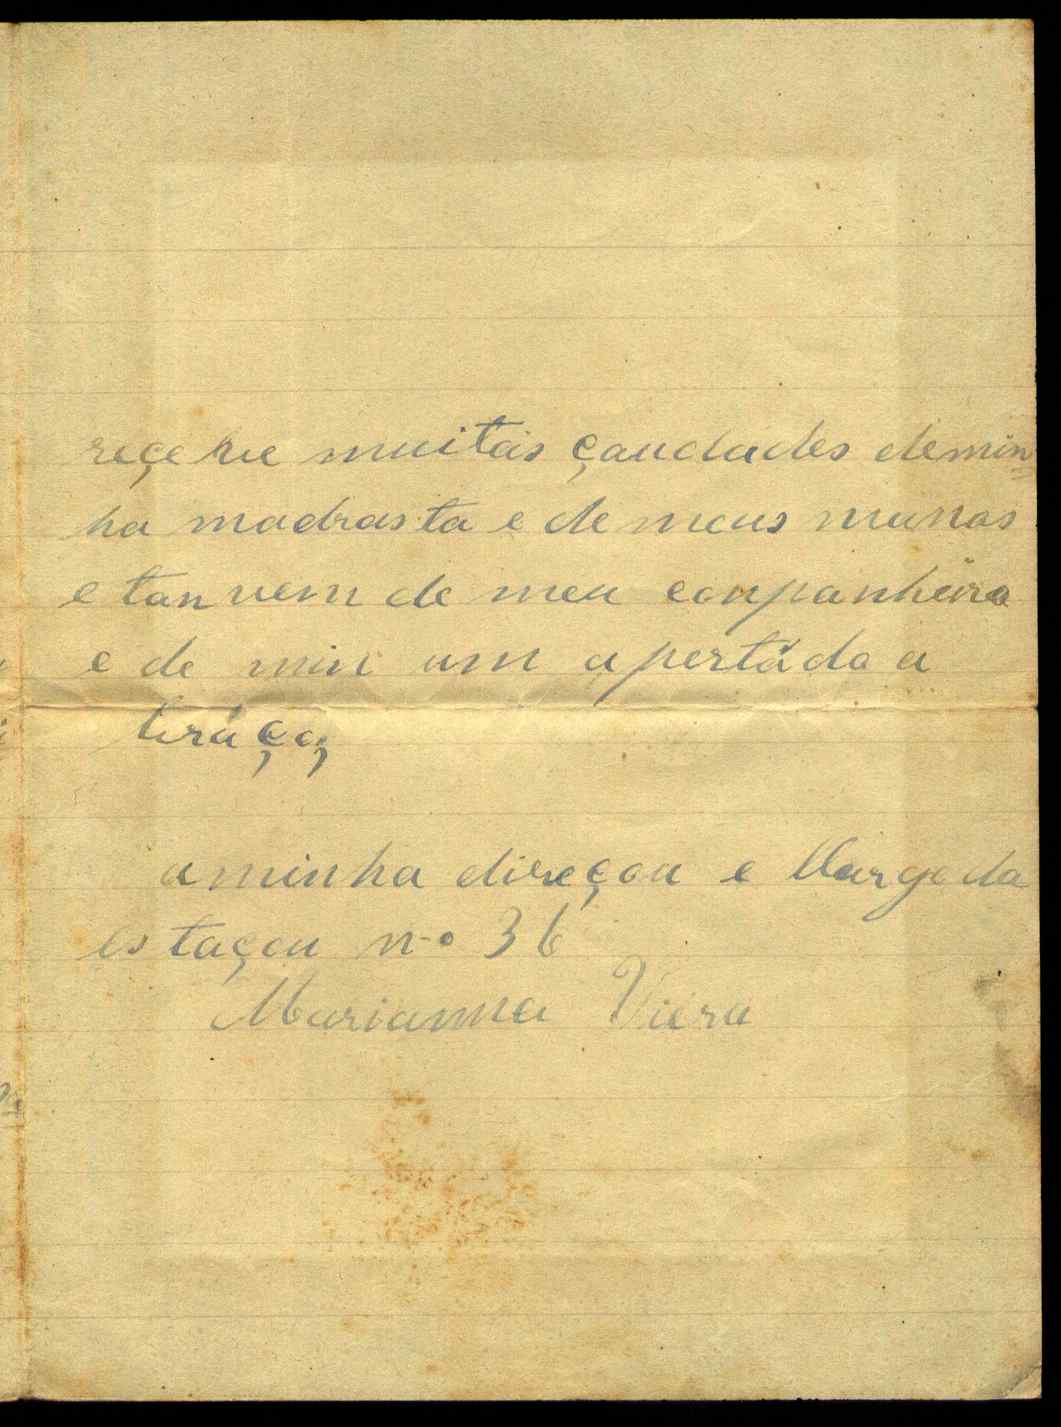 reçeve muitas çaudades demin
ha madrasta e de meus manos
e tan vem de meu conpanheiro
e de min um apertádo a
bráço;
a minha direçou e llargo da
estaçou n.o 36
Marianna Viera